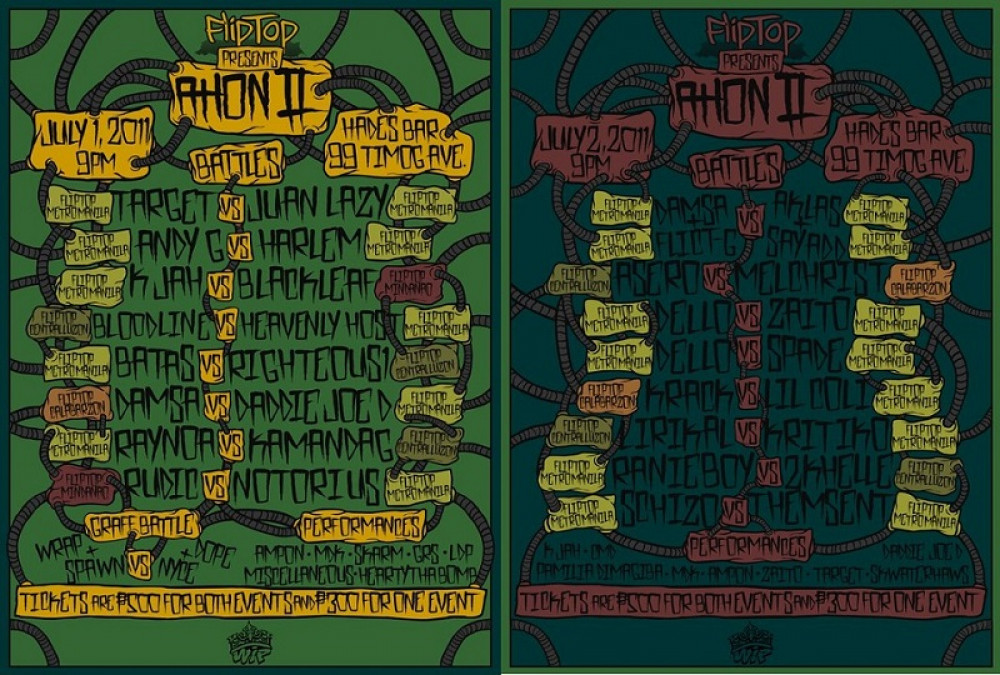 FLIPTOP
PRESENTS
AHON II
JULY 1, 2011
9PM
HADES BAR
99 TIMOG AVE.
BATTLES
FLIPTOP METRO MANILA TARGET VS JUAN LAZY FLIPTOP METRO MANILA
FLIPTOP METRO MANILA ANDY G VS HARLEM FLIPTOP METRO MANILA
FLIPTOP METRO MANILA K JAH VS BLACKLEAF FLIPTOP MINDANAO
FLIPTOP CENTRAL LUZON BLOODLINE VS HEAVENLY HOS FLIPTOP METRO MANILA
FLIPTOP METRO MANILA BATAS VS RIGHTEOUS1 FLIPTOP CENTRAL LUZON
FLIPTOP CALABARZON DAMSA VS DADDIE JOE D FLIPTOP METRO MANILA
FLIPTOP METRO MANILA RAYNOA VS KAMANDAG FLIPTOP CENTRAL LUZON
FLIPTOP MINDANAO RUDIC VS NOTORIUS FLIPTOP METRO MANILA
GRAFF BATTLE
WRAP + SPAWN VS NYCE + DOPE
PERFORMANCES
AMPON · MDK · SKARM · GRS · LDP
MISCELLANEOUS · HEARTYTHABOMB
TICKETS ARE ₱500 FOR BOTH EVENTS AND ₱300 FOR ONE EVENT
WIP
FLIPTOP
PRESENTS
AHON II
JULY 2, 2011
9PM
HADES BAR
99 TIMOG AVE.
BATTLES
FLIPTOP METRO MANILA DAMSA VS AKLAS FLIPTOP METRO MANILA
+ +
FLIPTOP METRO MANILA FLICT-G SAYADD FLIPTOP METRO MANILA
FLIPTOP CENTRAL LUZON ASERO VS MELCHRIST FLIPTOP CALABARZON
FLIPTOP METRO MANILA DELLO VS ZAITO FLIPTOP METRO MANILA
FLIPTOP METRO MANILA DELLO VS SPADE FLIPTOP METRO MANILA
FLIPTOP CALABARZON KRACK VS LIL COLI FLIPTOP METRO MANILA
FLIPTOP CENTRAL LUZON ZIRIKAL VS KRITIKO FLIPTOP METRO MANILA
FLIPTOP METRO MANILA RANIEBOY VS 2KHELLE FLIPTOP CENTRAL LUZON
FLIPTOP METRO MANILA SCHIZO VS THEMSENT FLIPTOP METRO MANILA
PERFORMANCES
K JAH · DMD DADDIE JOE D
PAMILIA DIMAGIBA · MDK · AMPON · ZAITO · TARGET · SKWATERHAWS
TICKETS ARE ₱500 FOR BOTH EVENTS AND ₱300 FOR ONE EVENT
WIP